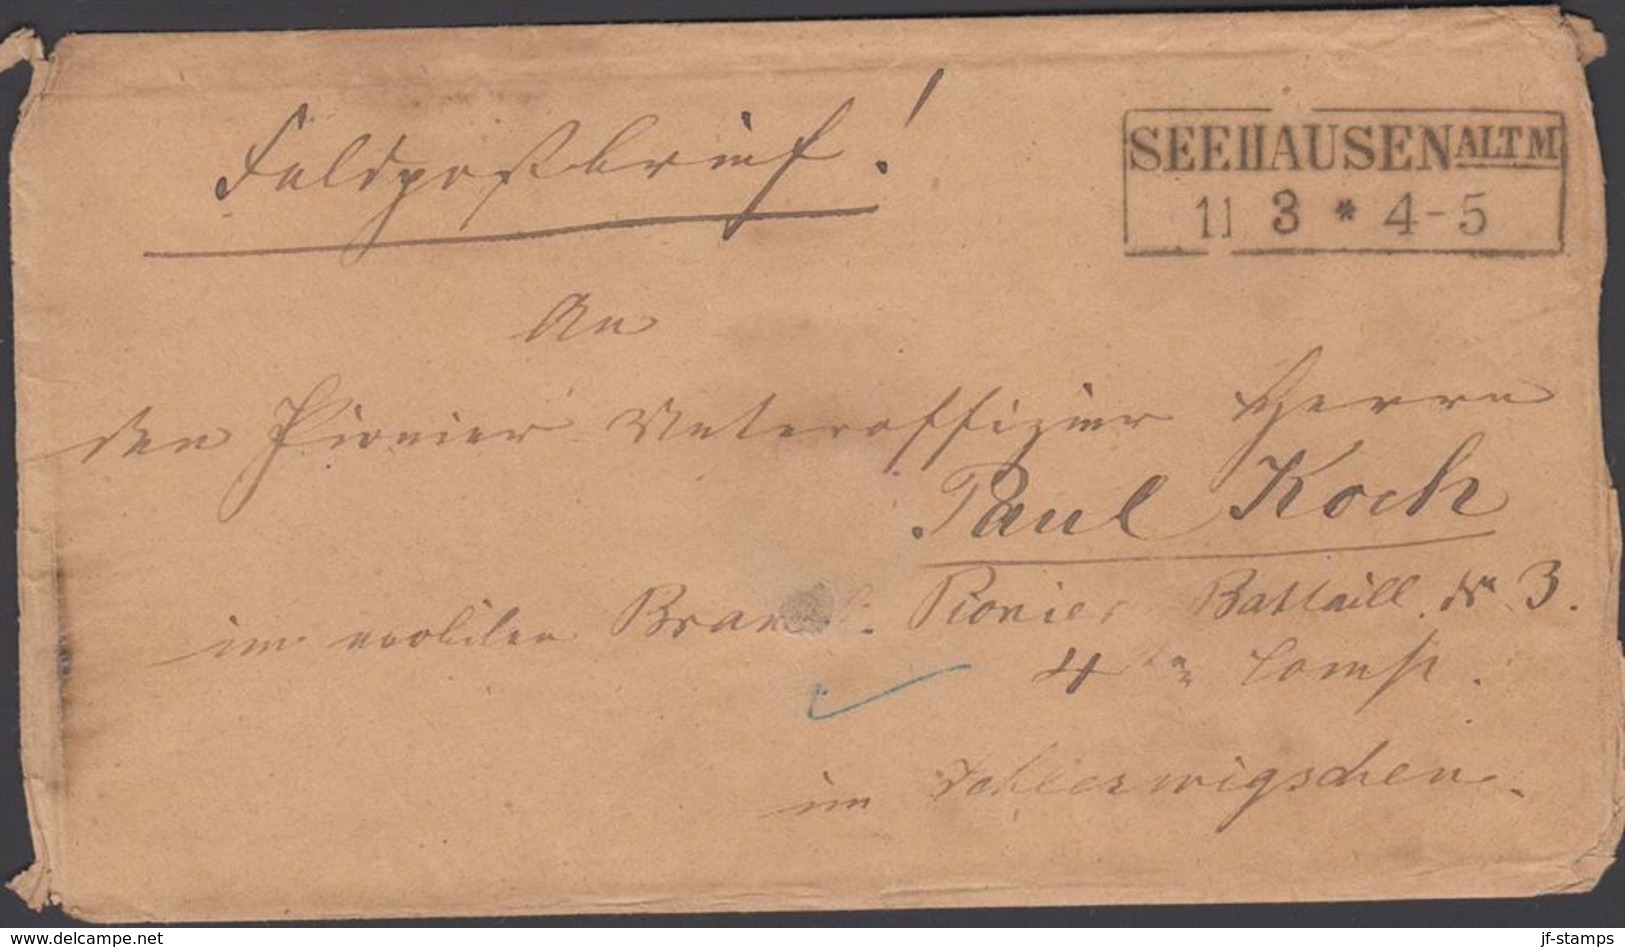 Feldpostbrief!
SEEHAUSEN ALTM
11 3 * 4-5
An
den Pionier Unteroffizier Herrn
Paul Koch
im mobilen Brand. Pionier Bataill. No 3.
4te Comp.
im Schleswigschen.
www.delcampe.net
jf-stamps